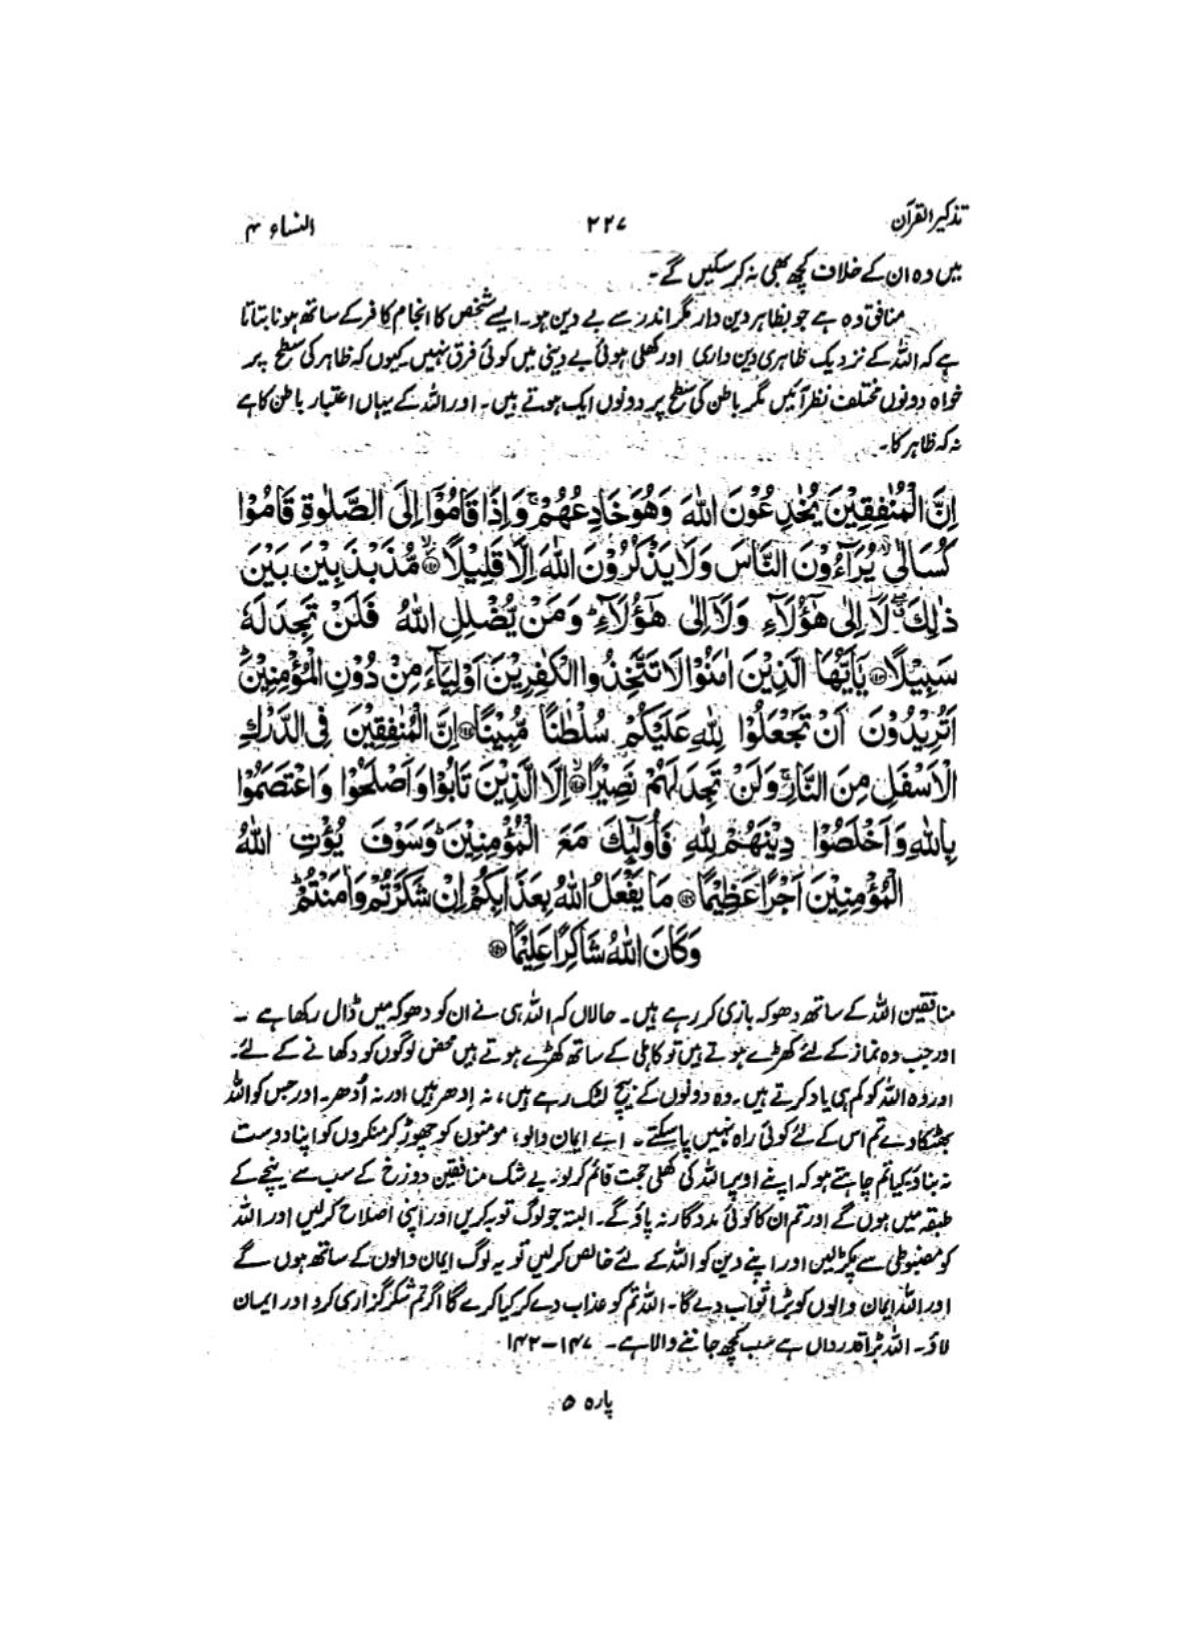 تذکیر القرآن ۲۲۷ النساء ۴
ہیں وہ ان کے خلاف کچھ بھی نہ کرسکیں گے۔
منافق وہ ہے جو بظاہر دین دار مگر اندر سے بے دین ہو۔ ایسے شخص کا انجام کافر کے ساتھ ہونا بتاتا
ہے کہ اللہ کے نزدیک ظاہری دین داری اور کھلی ہوئی بے دینی میں کوئی فرق نہیں۔ کیوں کہ ظاہر کی سطح پر
خواہ دونوں مختلف نظر آئیں مگر باطن کی سطح پر دونوں ایک ہوتے ہیں۔ اور اللہ کے یہاں اعتبار باطن کا ہے
نہ کہ ظاہر کا۔
اِنَّ الْمُنٰفِقِيْنَ يُخٰدِعُوْنَ اللّٰهَ وَهُوَ خَادِعُهُمْ ۚ وَاِذَا قَامُوْٓا اِلَى الصَّلٰوةِ قَامُوْا
كُسَالٰى ۙ يُرَآءُوْنَ النَّاسَ وَلَا يَذْكُرُوْنَ اللّٰهَ اِلَّا قَلِيْلًا ۙ‏﴿۱۴۲﴾ مُّذَبْذَبِيْنَ بَيْنَ
ذٰلِكَ ۖ لَآ اِلٰى هٰٓؤُلَآءِ وَلَآ اِلٰى هٰٓؤُلَآءِ ؕ وَمَنْ يُّضْلِلِ اللّٰهُ فَلَنْ تَجِدَ لَهٗ
سَبِيْلًا ﴿۱۴۳﴾ يٰٓاَيُّهَا الَّذِيْنَ اٰمَنُوْا لَا تَتَّخِذُوا الْكٰفِرِيْنَ اَوْلِيَآءَ مِنْ دُوْنِ الْمُؤْمِنِيْنَ ؕ
اَتُرِيْدُوْنَ اَنْ تَجْعَلُوْا لِلّٰهِ عَلَيْكُمْ سُلْطٰنًا مُّبِيْنًا ﴿۱۴۴﴾ اِنَّ الْمُنٰفِقِيْنَ فِى الدَّرْكِ
الْاَسْفَلِ مِنَ النَّارِ ۚ وَلَنْ تَجِدَ لَهُمْ نَصِيْرًا ۙ﴿۱۴۵﴾ اِلَّا الَّذِيْنَ تَابُوْا وَاَصْلَحُوْا وَاعْتَصَمُوْا
بِاللّٰهِ وَاَخْلَصُوْا دِيْنَهُمْ لِلّٰهِ فَاُولٰٓئِكَ مَعَ الْمُؤْمِنِيْنَ ؕ وَسَوْفَ يُؤْتِ اللّٰهُ
الْمُؤْمِنِيْنَ اَجْرًا عَظِيْمًا ﴿۱۴۶﴾ مَا يَفْعَلُ اللّٰهُ بِعَذَابِكُمْ اِنْ شَكَرْتُمْ وَاٰمَنْتُمْ ؕ
وَكَانَ اللّٰهُ شَاكِرًا عَلِيْمًا ﴿۱۴۷﴾
منافقین اللہ کے ساتھ دھوکہ بازی کر رہے ہیں۔ حالاں کہ اللہ ہی نے ان کو دھوکہ میں ڈال رکھا ہے۔
اور جب وہ نماز کے لئے کھڑے ہوتے ہیں تو کاہلی کے ساتھ کھڑے ہوتے ہیں محض لوگوں کو دکھانے کے لئے۔
اور وہ اللہ کو کم ہی یاد کرتے ہیں۔ وہ دونوں کے بیچ لٹک رہے ہیں، نہ اِدھر ہیں اور نہ اُدھر۔ اور جس کو اللہ
بھٹکا دے تم اس کے لئے کوئی راہ نہیں پا سکتے۔ اے ایمان والو، مومنوں کو چھوڑ کر منکروں کو اپنا دوست
نہ بناؤ۔ کیا تم چاہتے ہو کہ اپنے اوپر اللہ کی کھلی حجت قائم کر لو۔ بے شک منافقین دوزخ کے سب سے نیچے کے
طبقہ میں ہوں گے اور تم ان کا کوئی مددگار نہ پاؤ گے۔ البتہ جو لوگ توبہ کریں اور اپنی اصلاح کر لیں اور اللہ
کو مضبوطی سے پکڑ لیں اور اپنے دین کو اللہ کے لئے خالص کر لیں تو یہ لوگ ایمان والوں کے ساتھ ہوں گے
اور اللہ ایمان والوں کو بڑا ثواب دے گا۔ اللہ تم کو عذاب دے کر کیا کرے گا اگر تم شکر گزاری کرو اور ایمان
لاؤ۔ اللہ بڑا قدرداں ہے سب کچھ جاننے والا ہے۔ ۱۴۷-۱۴۲
پارہ ۵